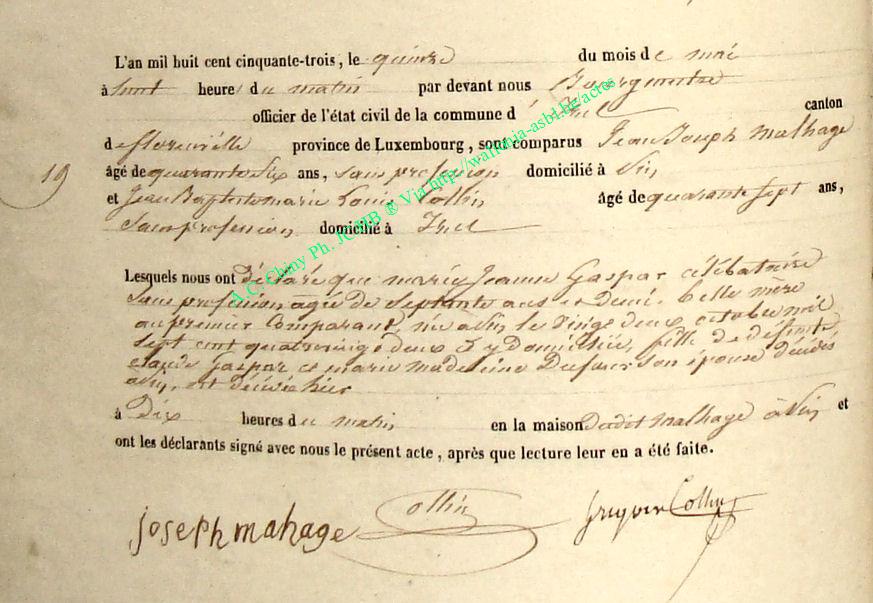 L'an mil huit cent cinquante-trois, le quinze du mois de mai
à huit heures du matin par devant nous Bourgmestre
officier de l'état civil de la commune d'Izel canton
de florenville province de Luxembourg, sont comparus Jean Joseph Malhage
19 âgé de quarante six ans, sans profession domicilié à
et Jean Baptiste marie Louis Collin âgé de quarante sept ans,
sans profession, domicilié à Izel
Lesquels nous ont déclaré que marie Jeanne Gaspar célibataire
sans profession agée de septante ans et demi belle mère
au premier comparant, née le vingt deux octobre mil
sept cent quatrevingt deux et y domiciliée, fille de défunts
claude Gaspar et marie madeleine son épouse décédés
est décédée hier
à Dix heures du matin en la maison dudit malhage à et
ont les déclarants signé avec nous le présent acte, après que lecture leur en a été faite.
joseph mahage Collin Collin
A.C. Chiny Ph. JCMB ® Via http://wallonia-asbl.be/actes